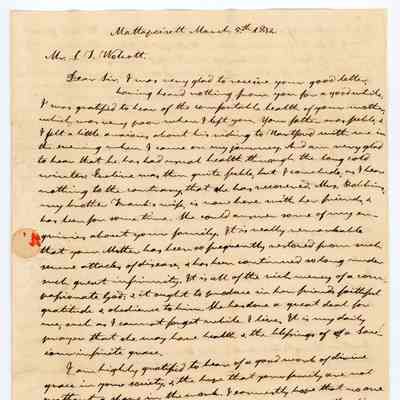 Mattapoisett March 5th 1832.
Mr. S. I. Wolcott.
Dear Sir, I was very glad to receive your good letter,
having heard nothing from you for a good while,
I was gratified to hear of the comfortable health of your mother,
which was very poor when I left you. Your father was feeble, &
I felt a little anxious about his riding to Hartford with me in
the evening when I came on my journey. And am very glad
to hear that he has had usual health through the long cold
winter. was then quite feeble, but I conclude, as I hear
nothing to the contrary, that she has recovered. Mrs. Robbins,
my brother Frank's wife, is now here with her friends, &
has been for some time. She could answer some of my en-
quiries about your family. It is really remarkable
that your Mother has been so frequently restored from such
severe attacks of disease, & has been continued so long under
such great infirmity. It is all of the rich mercy of a com-
passionate God; & it ought to produce in her friends faithful
gratitude & obedience to him. She has done a great deal for
me, such as I cannot forget while I live. It is my daily
prayer that she may have health & the blessings of a Sav-
iour's infinite grace.
I am highly gratified to hear of a good work of divine
grace in your society, & the hope that your family are not
without a share in the work. I earnestly hope that no one